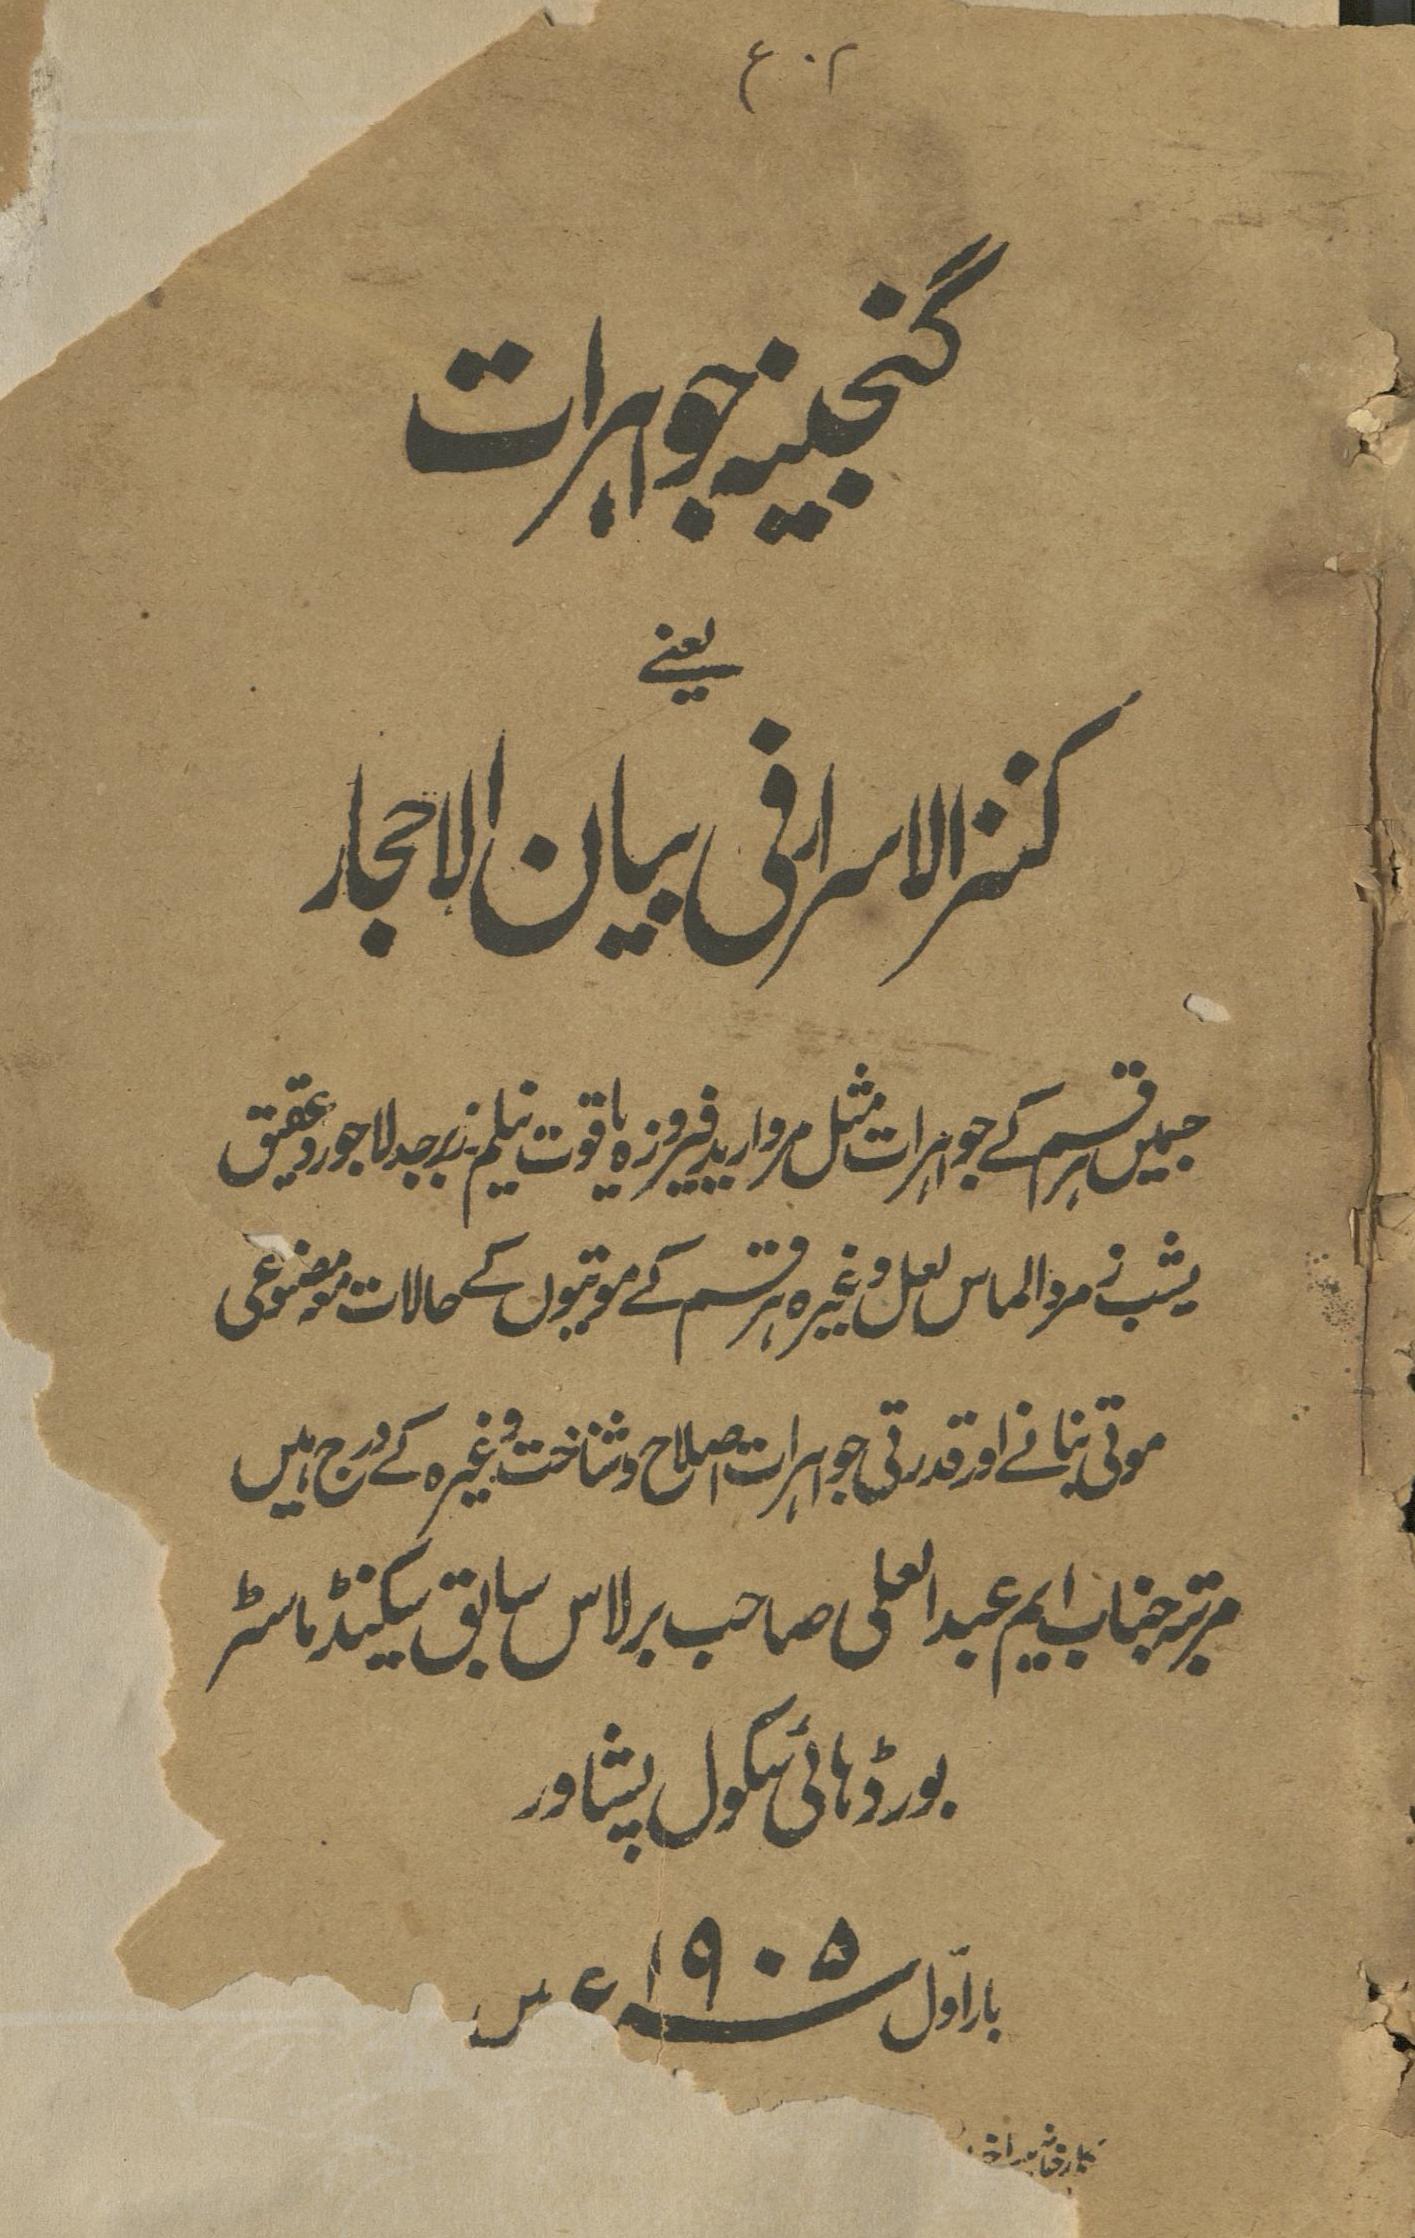 گنجینہ جواہرات
یعنے
کنز الاسرار فی بیان الاحجار
جسمیں ہر قسم کے جواہرات مثل مروارید فیروزہ یاقوت نیلم زبرجد لاجورد عقیق
یشب زمرد الماس لعل وغیرہ ہر قسم کے موتیوں کے حالات مصنوعی
موتی بنانے اور قدرتی جواہرات اصلاح و شناخت وغیرہ کے درج ہیں
مرتبہ جناب ایم عبد العلی صاحب برلاس سابق سیکنڈ ماسٹر
بورڈ ہائی سکول پشاور
بار اوّل سنہ ۱۹۰۵ء میں